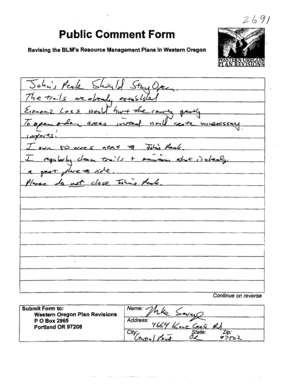 2691
Public Comment Form
Revising the BLM's Resource Management Plans in Western Oregon
WESTERN OREGON
PLAN REVISIONS
John's Peak Should Stay Open.
The trails are already established
Economic Loss would hurt the county greatly
To open other areas instead would create unnecessary
impacts.
I own 80 acres next to John's Peak.
I regularly clean trails & maintain what is already
a great place to ride.
Please do not close John's Peak.
Continue on reverse
Submit Form to:
Western Oregon Plan Revisions
P O Box 2965
Portland OR 97208
Name: Mike
Address:
City: Central Point State: OR Zip: 97502